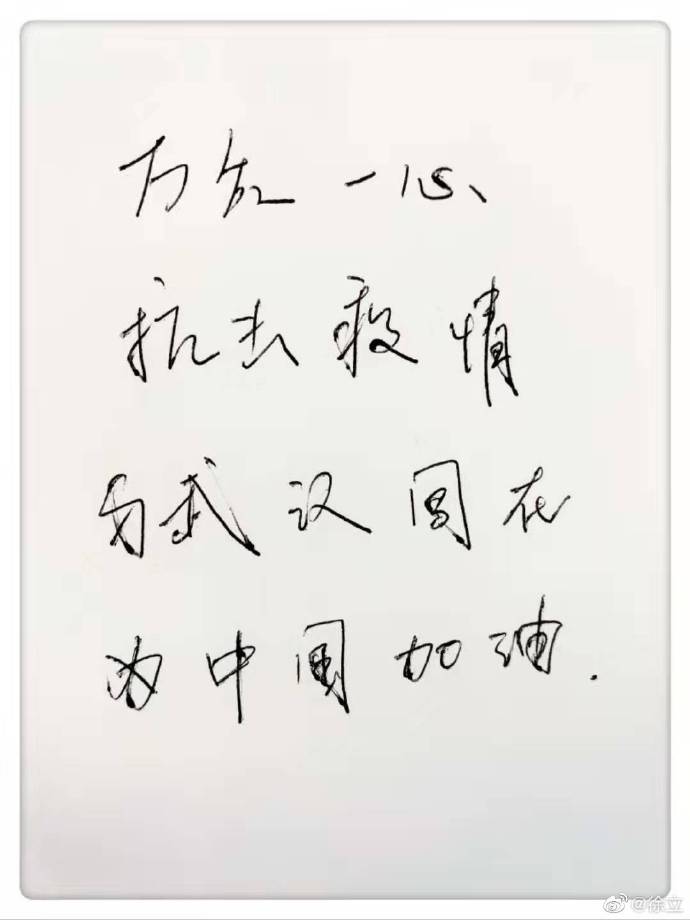 万众一心
抗击疫情
与武汉同在
为中国加油.
@徐立